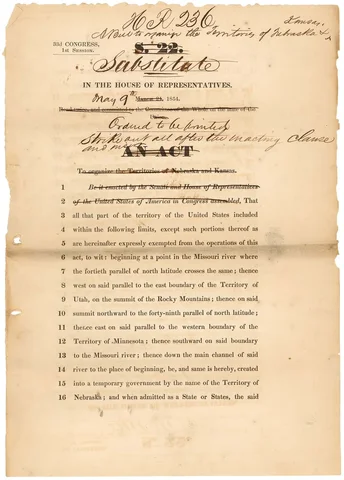 H R 236
Kansas
A Bill to organize the Territories of Nebraska &
33d CONGRESS,
1st Session.
S. 22.
Substitute
IN THE HOUSE OF REPRESENTATIVES.
May 9th March 21, 1854.
Read twice, and committed to the Committee of the Whole on the state of the
Union
Ordered to be printed
Strike out all after the enacting clause
and
AN ACT
To organize the Territories of Nebraska and Kansas.
1 Be it enacted by the Senate and House of Representatives
2 of the United States of America in Congress assembled, That
3 all that part of the territory of the United States included
4 within the following limits, except such portions thereof as
5 are hereinafter expressly exempted from the operations of this
6 act, to wit: beginning at a point in the Missouri river where
7 the fortieth parallel of north latitude crosses the same; thence
8 west on said parallel to the east boundary of the Territory of
9 Utah, on the summit of the Rocky Mountains; thence on said
10 summit northward to the forty-ninth parallel of north latitude;
11 thence east on said parallel to the western boundary of the
12 Territory of Minnesota; thence southward on said boundary
13 to the Missouri river; thence down the main channel of said
14 river to the place of beginning, be, and same is hereby, created
15 into a temporary government by the name of the Territory of
16 Nebraska; and when admitted as a State or States, the said